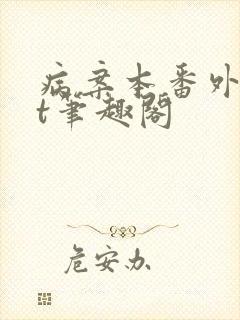 病案本番外
t筆趣阁
危安办